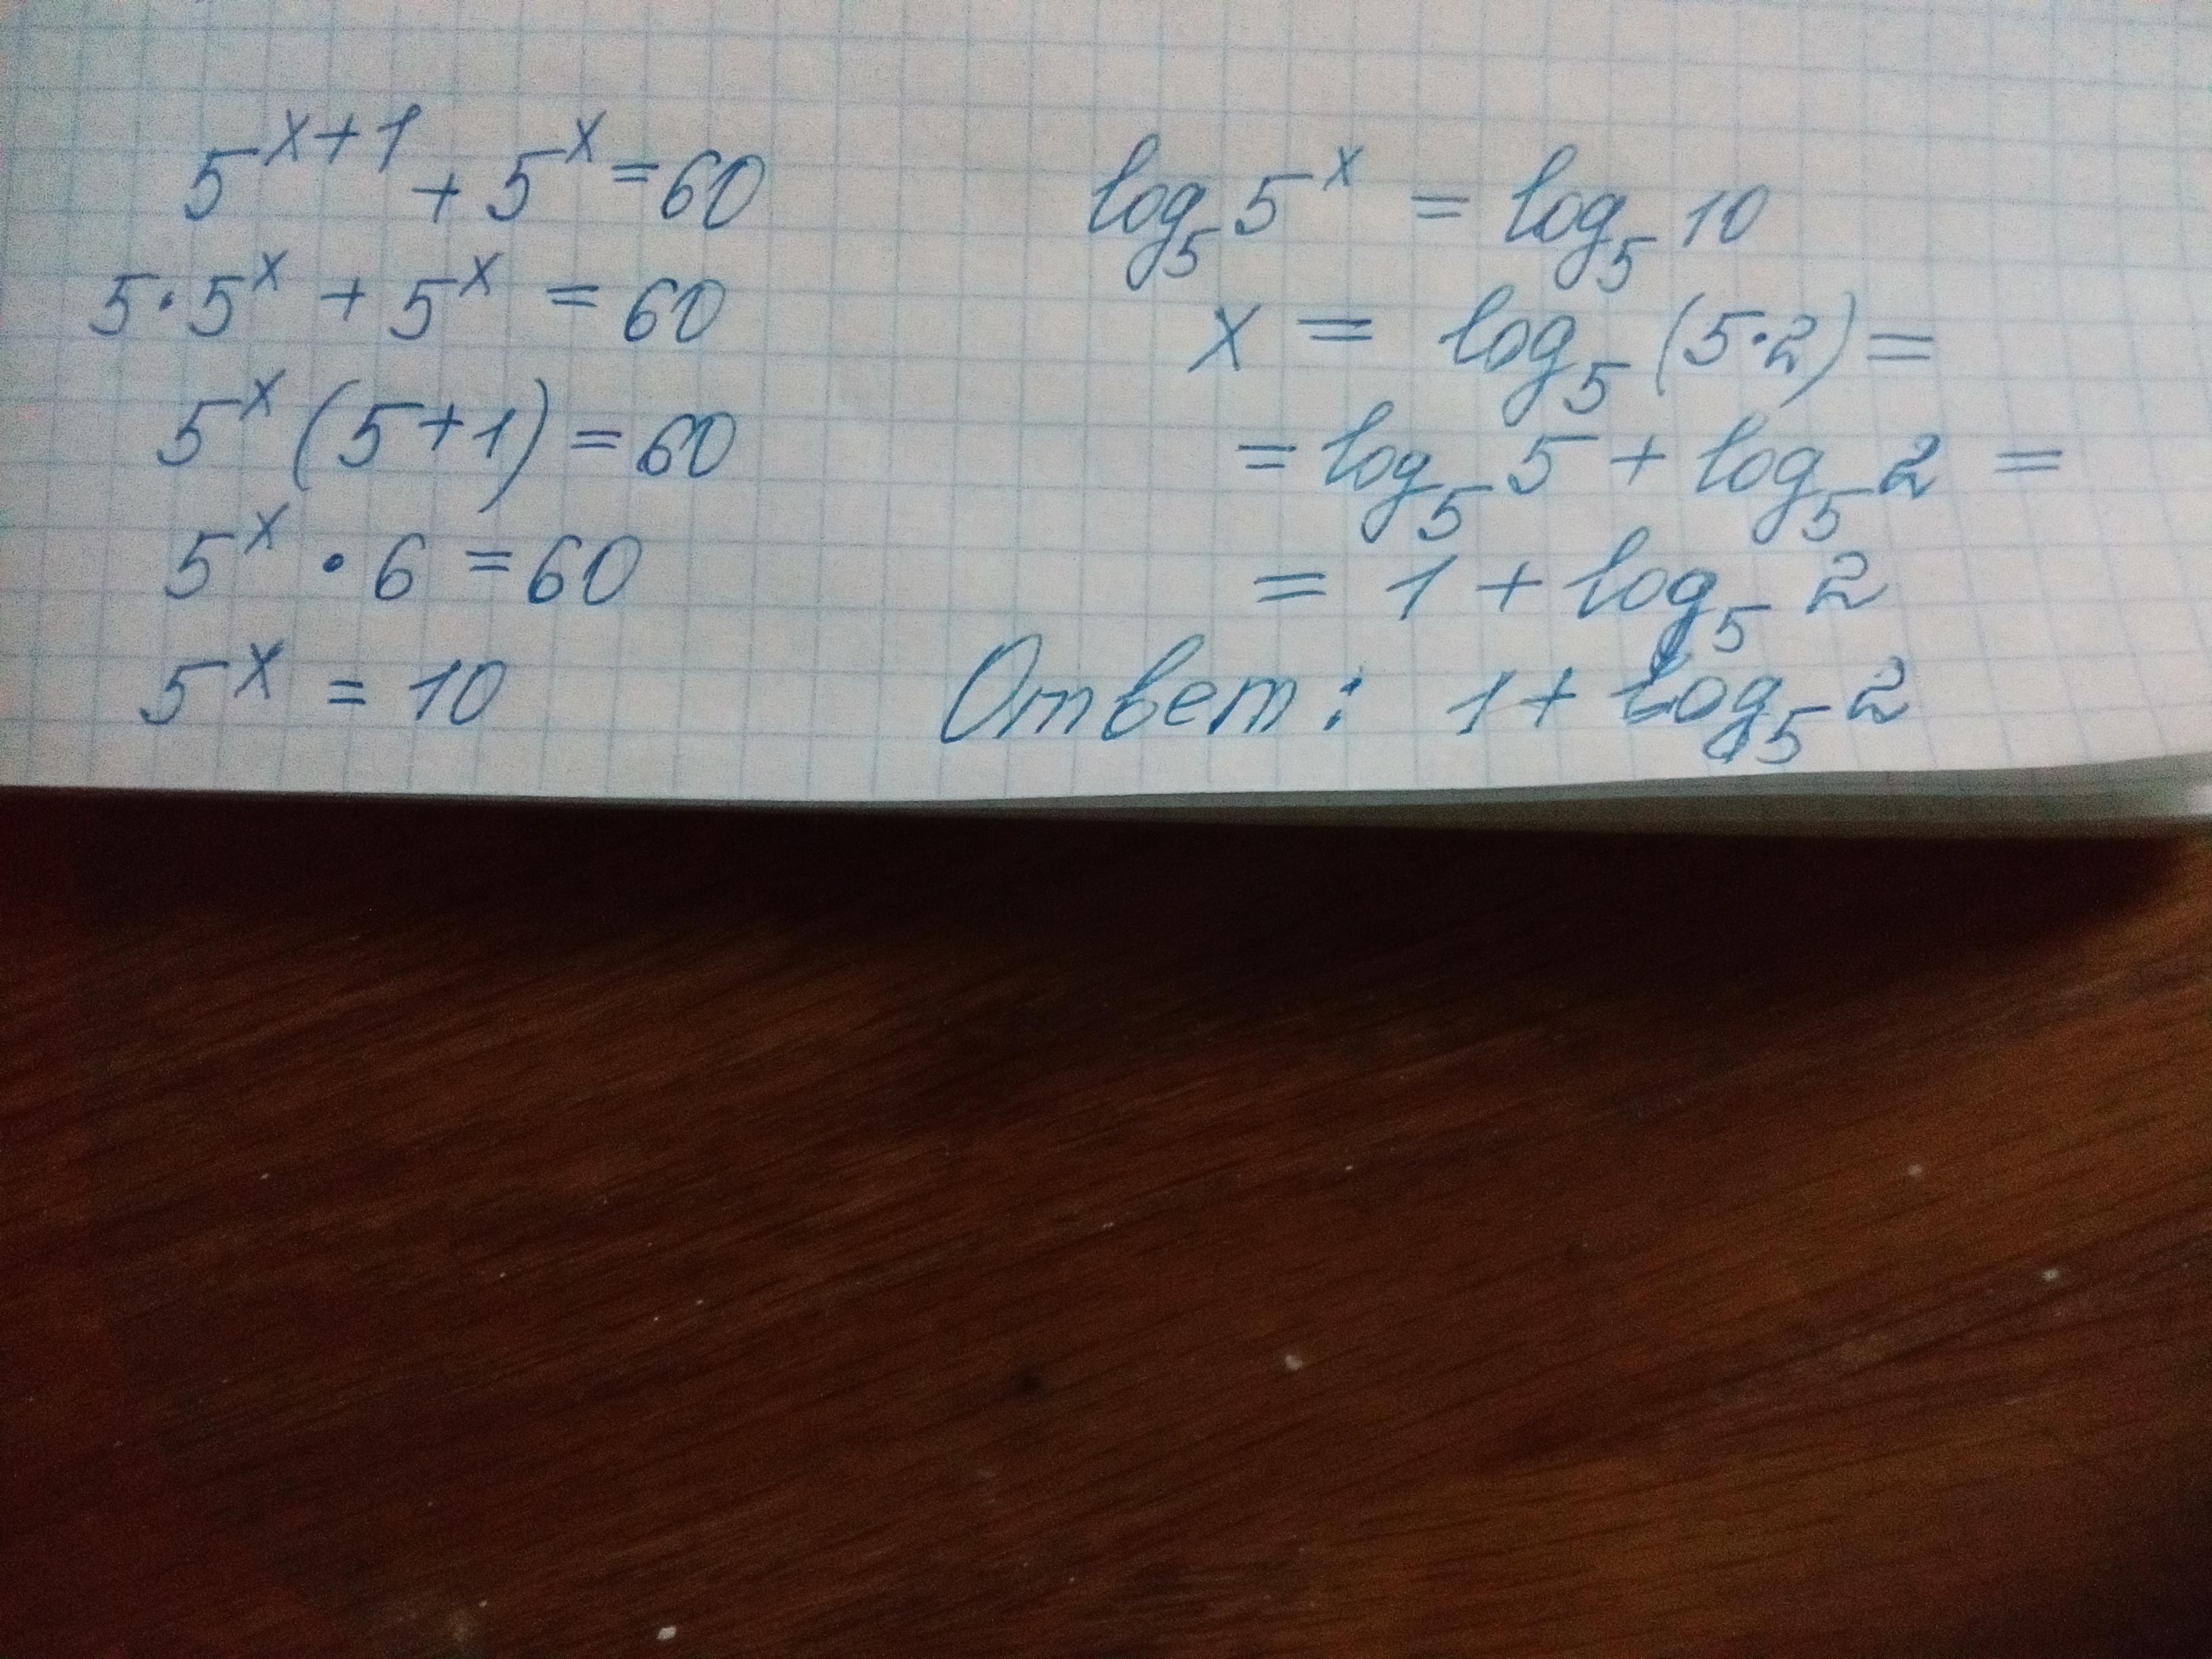 5^{x+1} + 5^x = 60
5·5^x + 5^x = 60
5^x (5+1) = 60
5^x · 6 = 60
5^x = 10
log_5 5^x = log_5 10
x = log_5 (5·2) =
= log_5 5 + log_5 2 =
= 1 + log_5 2
Ответ: 1 + log_5 2